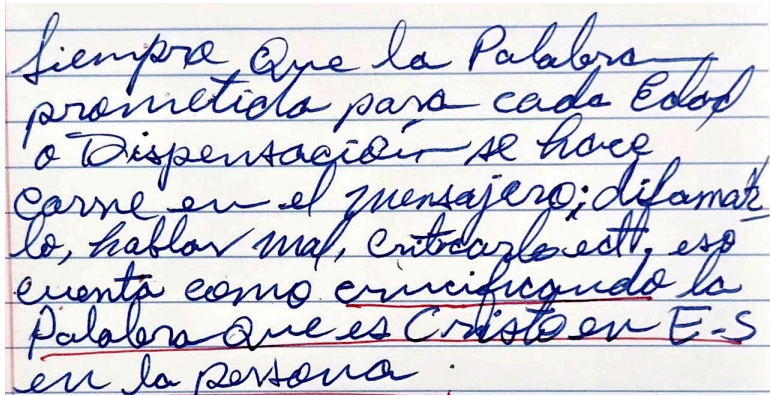 Siempre Que la Palabra
prometida para cada Edad
o Dispensación se hace
carne en el mensajero; difamar
lo, hablar mal, criticarlo ect, eso
cuenta como crucificando la
Palabra Que es Cristo en E-S
en la persona.